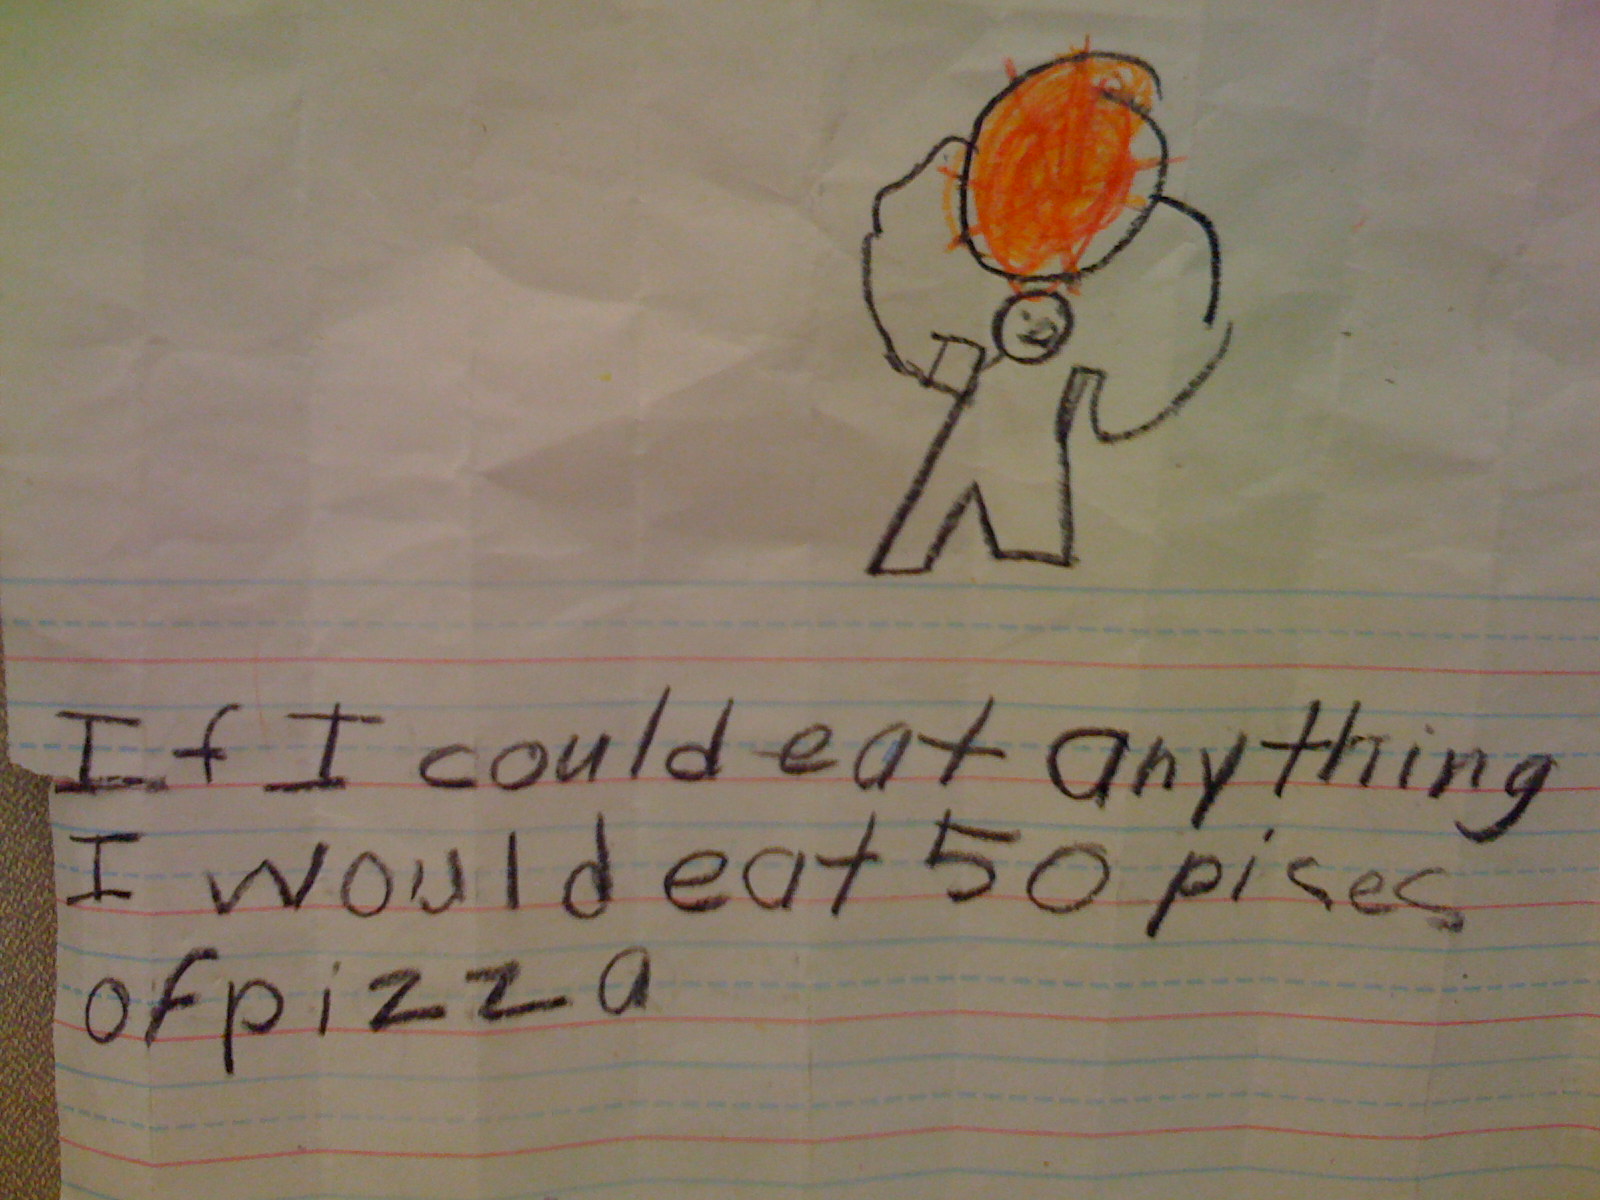 If I could eat anything
I would eat 50 pises
of pizza